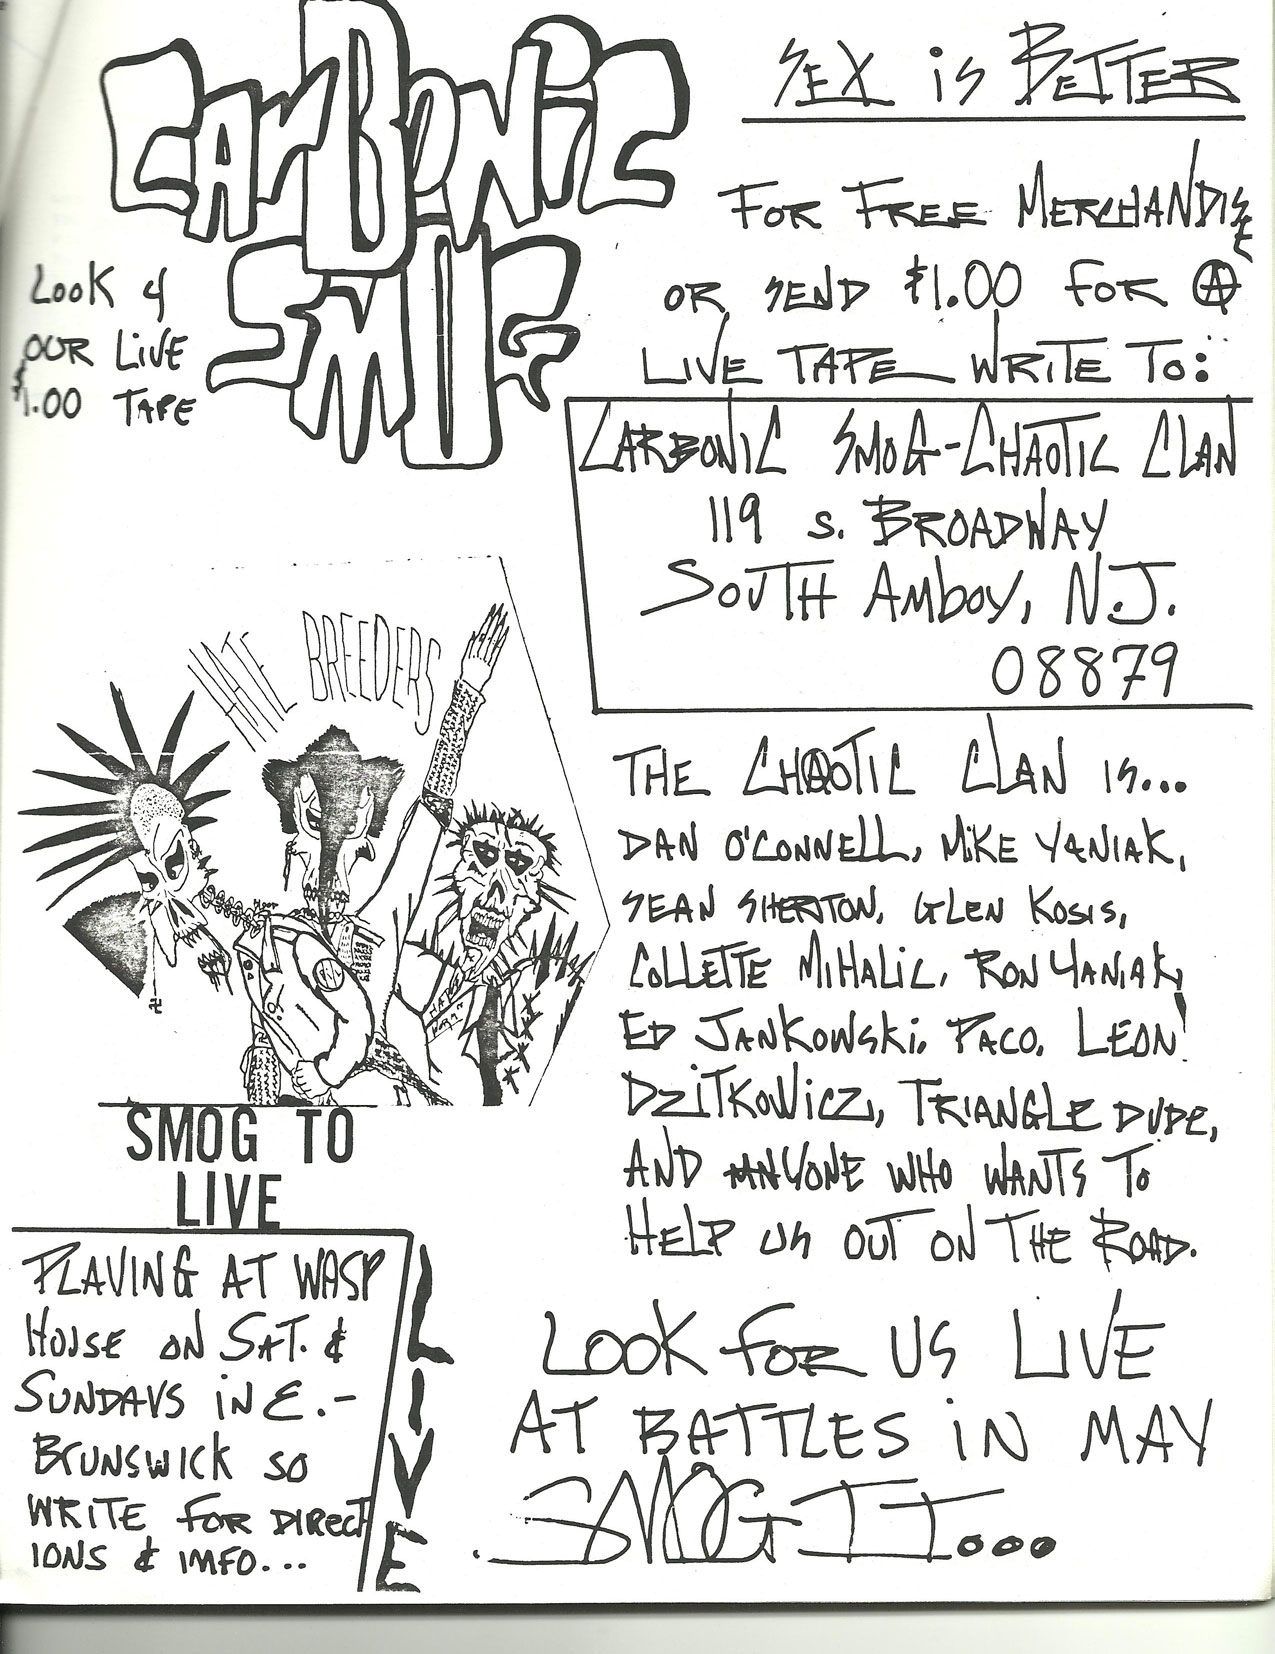 CARBONIC
SMOG
LOOK 4
OUR LIVE
$1.00 TAPE
SEX iS BETTER
FOR FREE MERCHANDISE
OR SEND $1.00 FOR A
LIVE TAPE WRITE TO:
CARBONIC SMOG-CHAOTIC CLAN
119 S. BROADWAY
SOUTH AMBOY, N.J.
08879
HATE BREEDERS
SMOG TO
LIVE
THE CHAOTIC CLAN IS...
DAN O'CONNELL, MIKE YANIAK,
SEAN SHERTON, GLEN KOSIS,
COLLETTE MIHALIC, RON YANIAK,
ED JANKOWSKI, PACO, LEON
DZITKOWICZ, TRIANGLE DUDE,
AND ANYONE WHO WANTS TO
HELP US OUT ON THE ROAD.
PLAYING AT WASP
HOUSE ON SAT. &
SUNDAYS IN E.-
BRUNSWICK SO
WRITE FOR DIRECT
IONS & IMFO...
LIVE
LOOK FOR US LIVE
AT BATTLES IN MAY
SMOG IT...